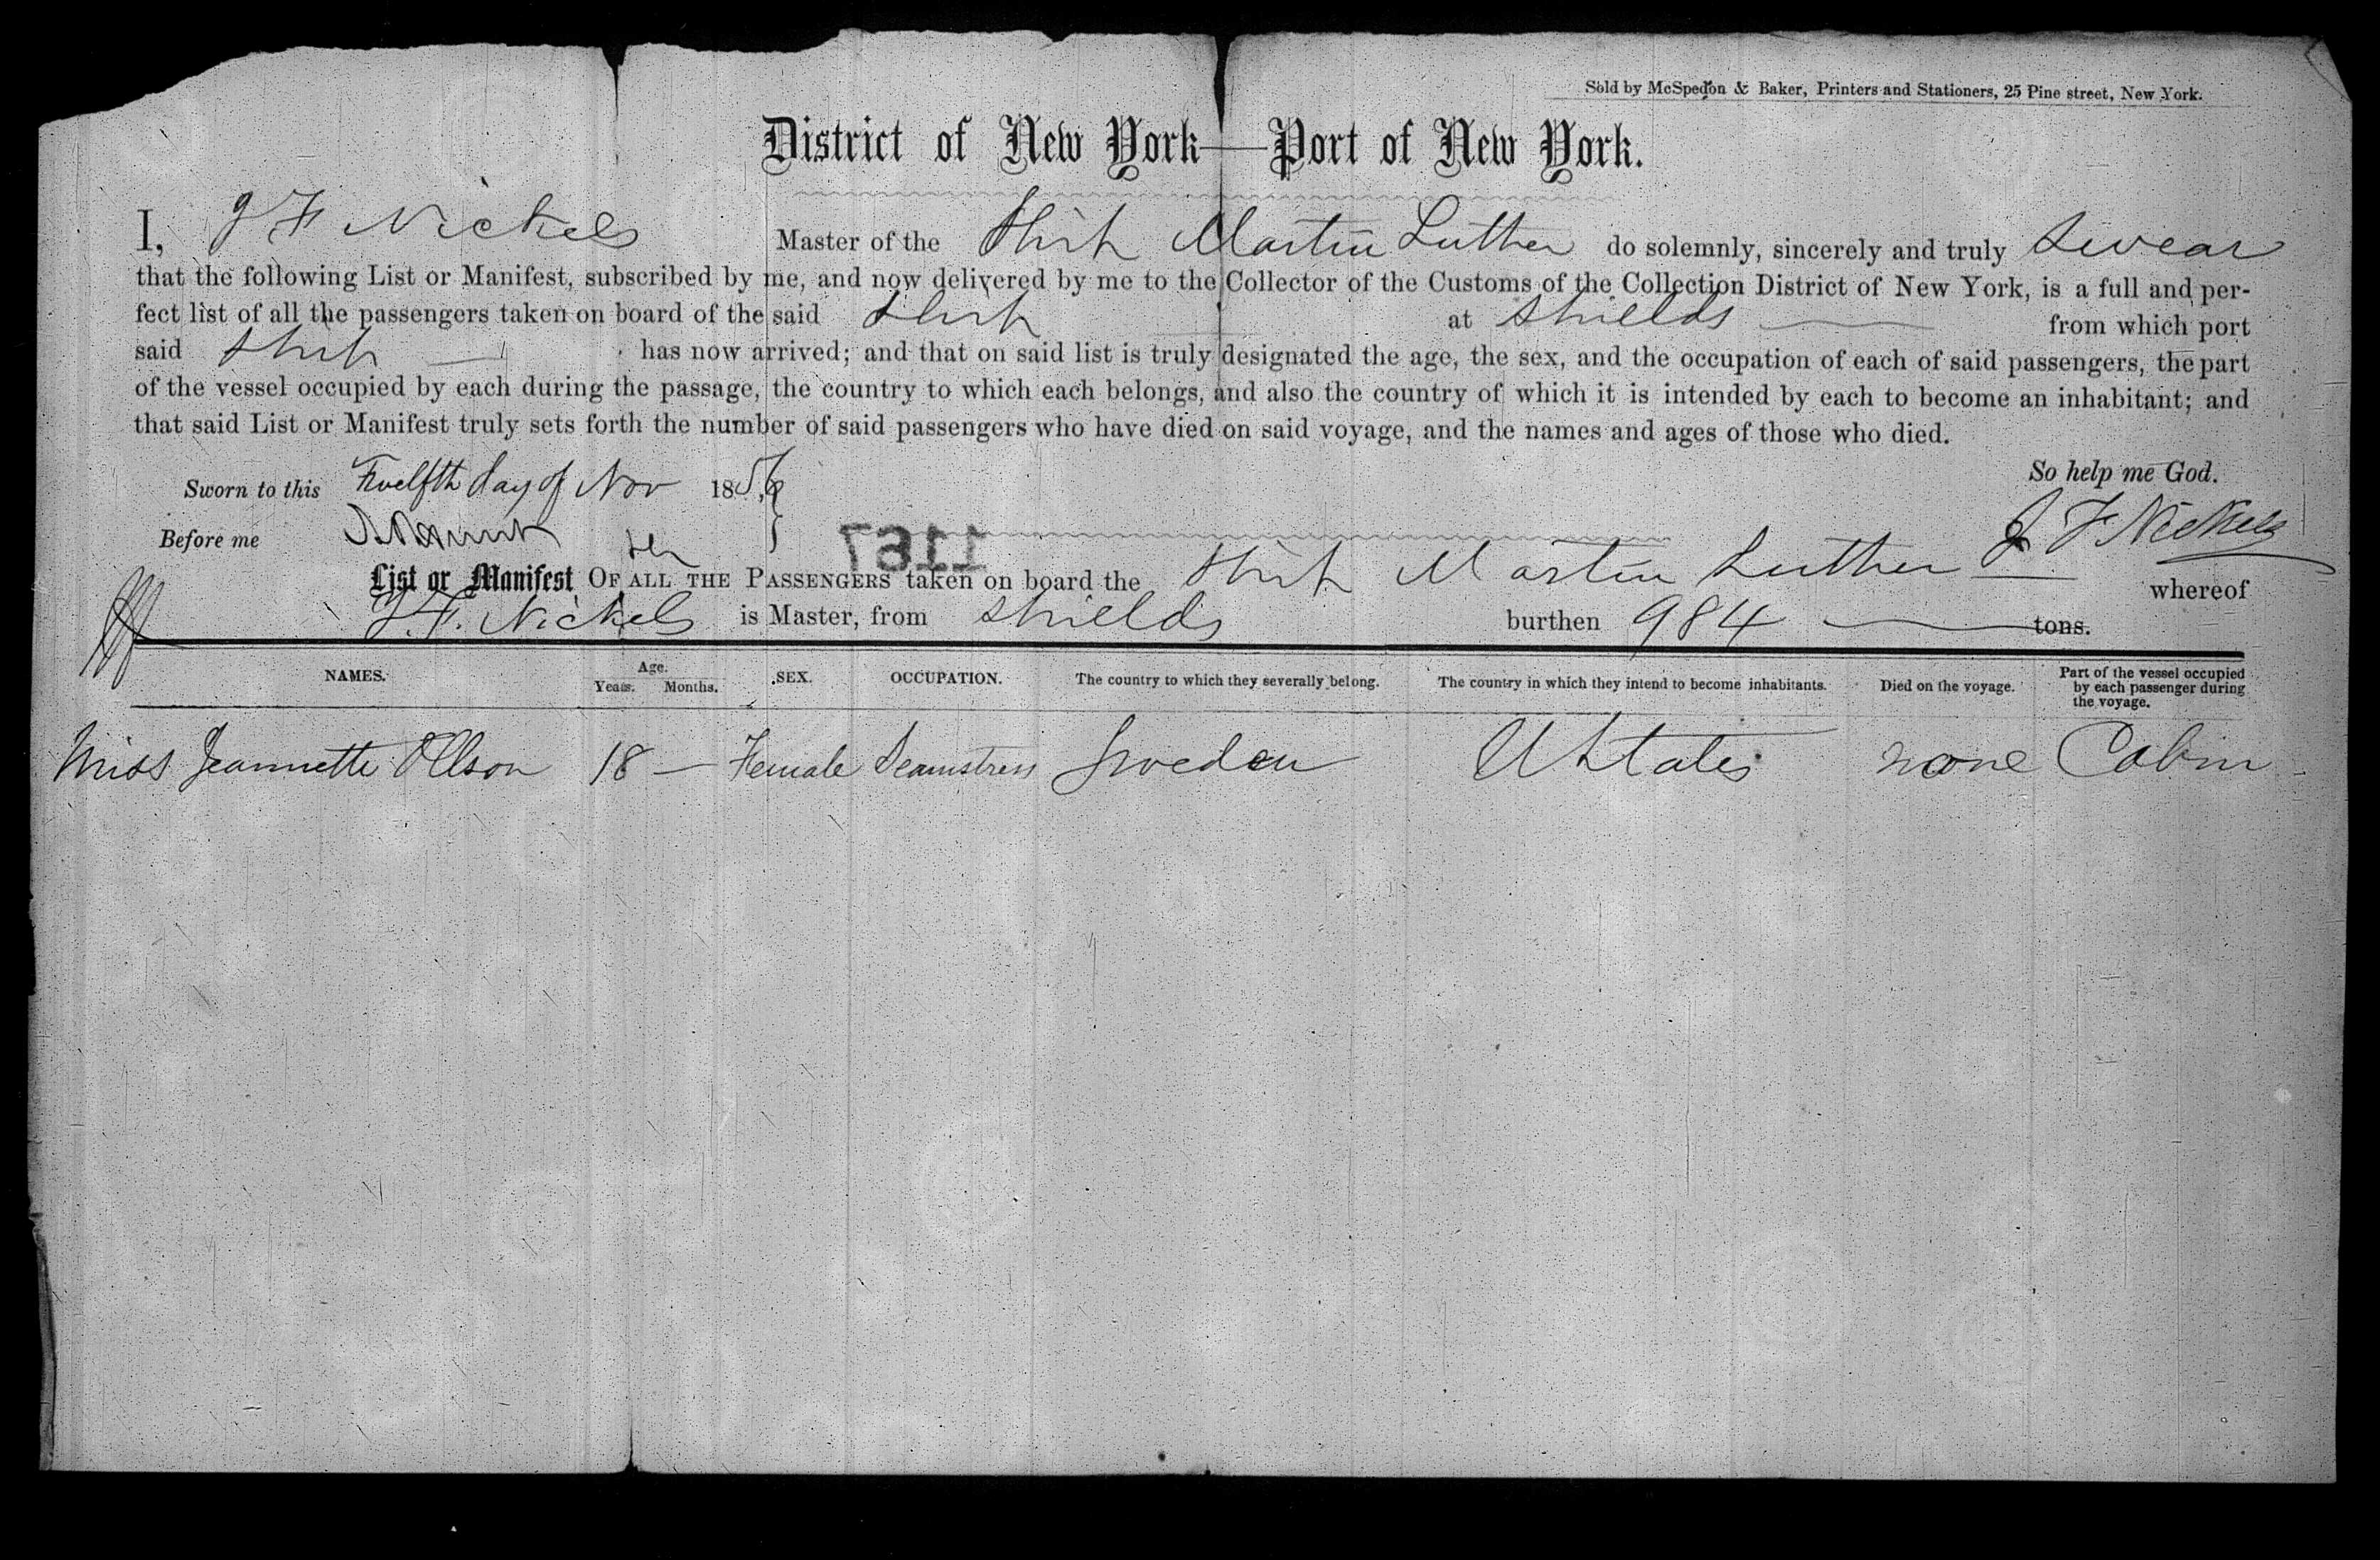 Sold by McSpedon & Baker, Printers and Stationers, 25 Pine street, New York.
District of New York—Port of New York.
I, J F Nickels Master of the Ship Martin Luther do solemnly, sincerely and truly swear
that the following List or Manifest, subscribed by me, and now delivered by me to the Collector of the Customs of the Collection District of New York, is a full and per-
fect list of all the passengers taken on board of the said Ship at Shields from which port
said Ship has now arrived; and that on said list is truly designated the age, the sex, and the occupation of each of said passengers, the part
of the vessel occupied by each during the passage, the country to which each belongs, and also the country of which it is intended by each to become an inhabitant; and
that said List or Manifest truly sets forth the number of said passengers who have died on said voyage, and the names and ages of those who died.
So help me God.
Sworn to this Twelfth day of Nov 1856
J F Nickels
Before me
1167
List or Manifest OF ALL THE PASSENGERS taken on board the Ship Martin Luther whereof
J. F. Nickels is Master, from Shields burthen 984 tons.
NAMES. Age. Years. Months. SEX. OCCUPATION. The country to which they severally belong. The country in which they intend to become inhabitants. Died on the voyage. Part of the vessel occupied by each passenger during the voyage.
Miss Jeannette Ollson 18 — Female Seamstress Sweden U States none Cabin